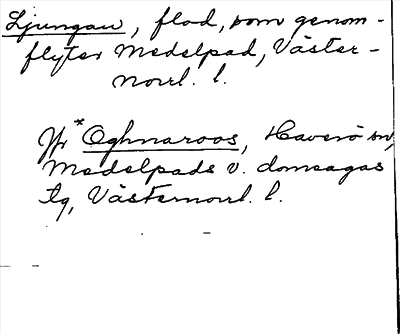 Ljungan, flod, som genom-
flyter Medelpad, Väster-
norrl. l.
Jfr *Oghnaroos, Haverö sn,
Medelpads v. domsagas
tg, Västernorrl. l.